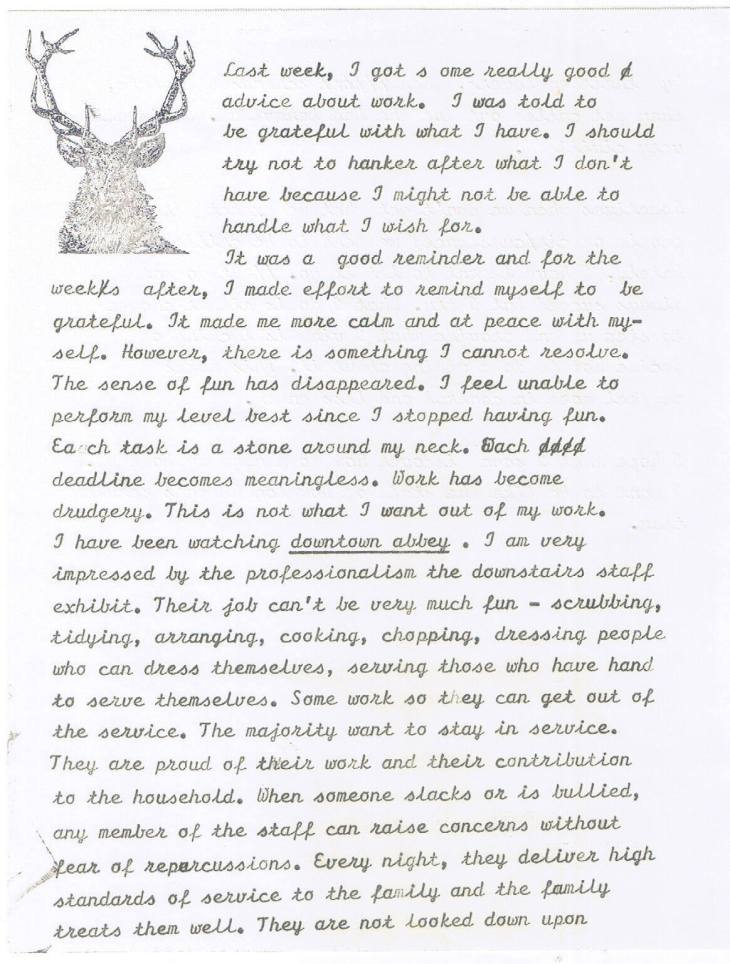 Last week, I got s ome really good
advice about work.  I was told to
be grateful with what I have. I should
try not to hanker after what I don't
have because I might not be able to
handle what I wish for.
It was a  good reminder and for the
weeks  after, I made effort to remind myself to  be
grateful. It made me more calm and at peace with my-
self. However, there is something I cannot resolve.
The sense of fun has disappeared. I feel unable to
perform my level best since I stopped having fun.
Each task is a stone around my neck. Each
deadline becomes meaningless. Work has become
drudgery. This is not what I want out of my work.
I have been watching downtown abbey . I am very
impressed by the professionalism the downstairs staff
exhibit. Their job can't be very much fun - scrubbing,
tidying, arranging, cooking, chopping, dressing people
who can dress themselves, serving those who have hand
to serve themselves. Some work so they can get out of
the service. The majority want to stay in service.
They are proud of their work and their contribution
to the household. When someone slacks or is bullied,
any member of the staff can raise concerns without
fear of reparcussions. Every night, they deliver high
standards of service to the family and the family
treats them well. They are not looked down upon